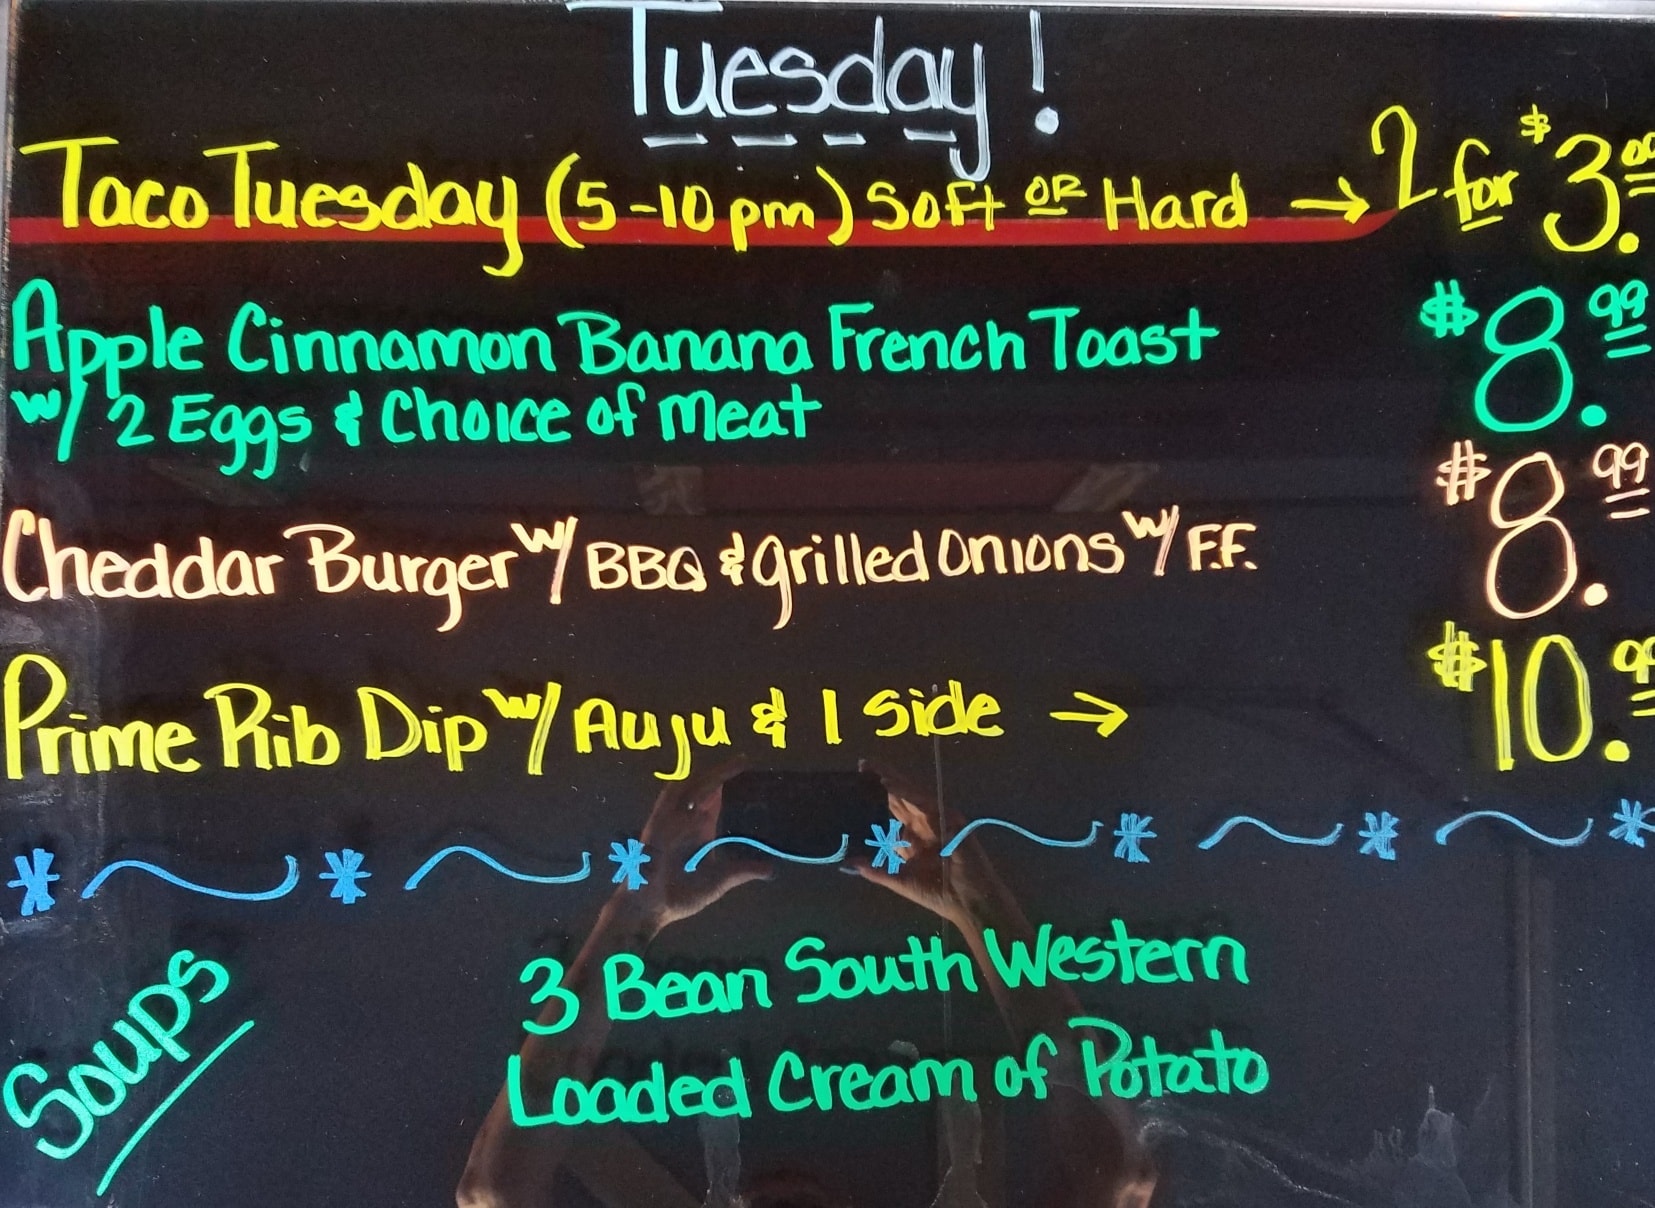 Tuesday!
Taco Tuesday (5-10pm) Soft or Hard → 2 for $3.00
Apple Cinnamon Banana French Toast $8.99
w/ 2 Eggs & Choice of meat
Cheddar Burger w/ BBQ & grilled Onions w/ F.F. $8.99
Prime Rib Dip w/ Auju & 1 side → $10.99
Soups
3 Bean South Western
Loaded Cream of Potato